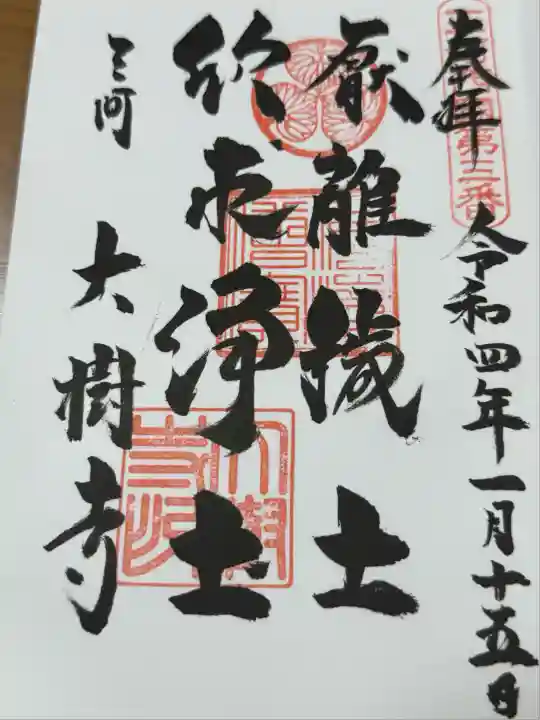 奉拝
第三番
令和四年一月十五日
厭離穢土
欣求浄土
三河
大樹寺